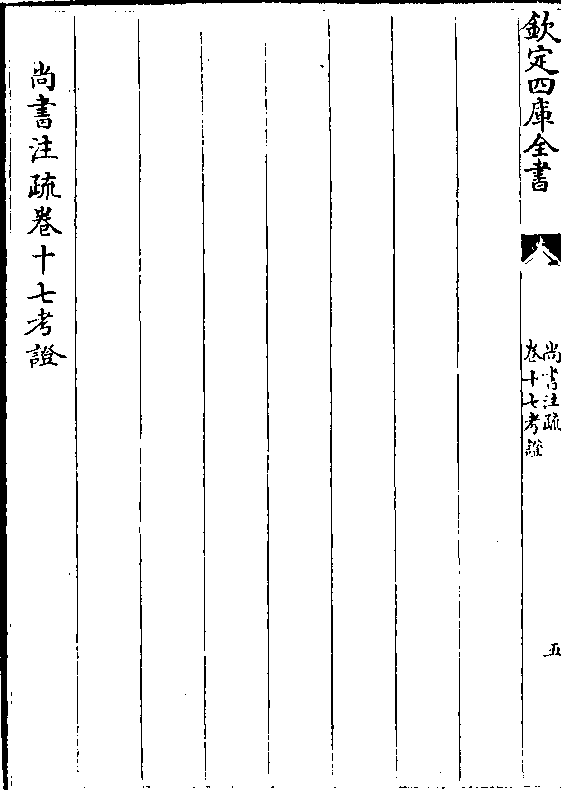 欽定四庫全書
尚書注疏
卷十七考證
五
尚書注疏卷十七考證